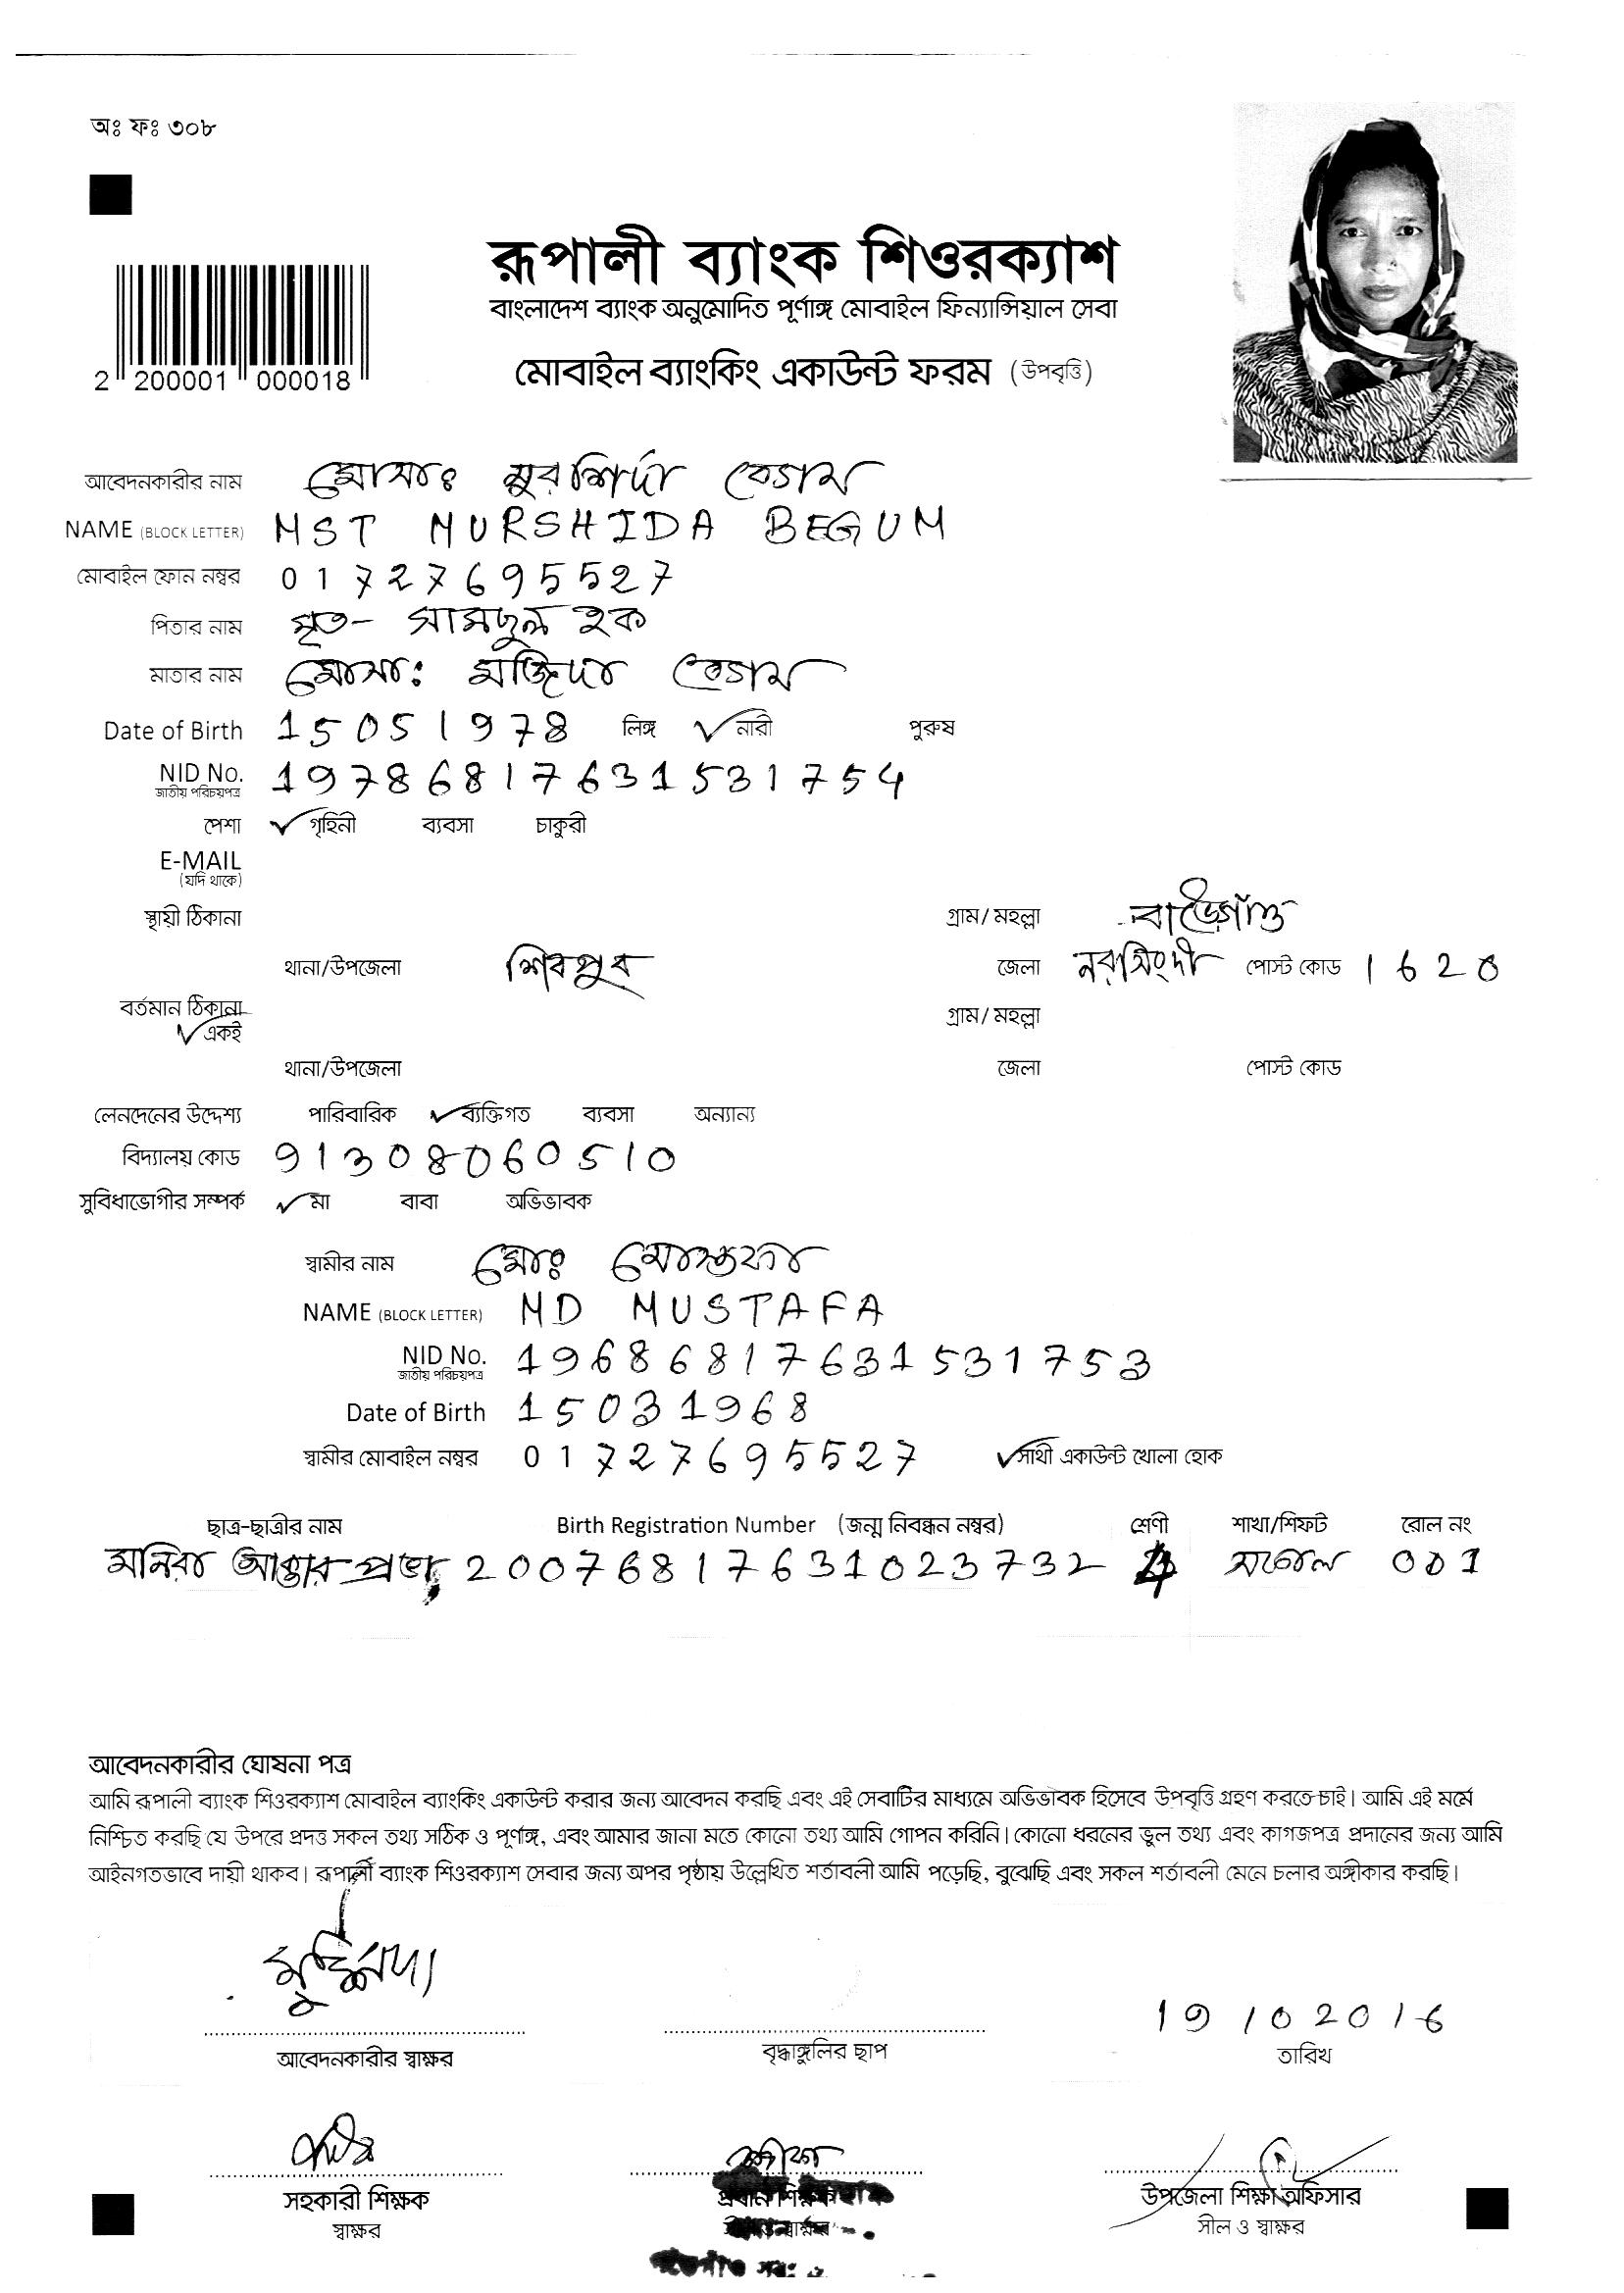 অঃ ফঃ ৩০৮
রূপালী ব্যাংক শিওরক্যাশ
বাংলাদেশ ব্যাংক অনুমোদিত পূর্ণাঙ্গ মোবাইল ফিন্যান্সিয়াল সেবা
2 200001 000018
মোবাইল ব্যাংকিং একাউন্ট ফরম (উপবৃত্তি)
আবেদনকারীর নাম মোসাঃ মুরশিদা বেগম
NAME (BLOCK LETTER) MST MURSHIDA BEGUM
মোবাইল ফোন নম্বর 01727695527
পিতার নাম মৃত- সামছুল হক
মাতার নাম মোসা: মজিদা বেগম
Date of Birth 15051978 লিঙ্গ নারী পুরুষ
NID No. 19786817631531754
জাতীয় পরিচয়পত্র
পেশা গৃহিনী ব্যবসা চাকুরী
E-MAIL
(যদি থাকে)
স্থায়ী ঠিকানা গ্রাম/ মহল্লা
থানা/উপজেলা শিবপুর জেলা নরসিংদী পোস্ট কোড 1620
বর্তমান ঠিকানা গ্রাম/ মহল্লা
একই
থানা/উপজেলা জেলা পোস্ট কোড
লেনদেনের উদ্দেশ্য পারিবারিক ব্যক্তিগত ব্যবসা অন্যান্য
বিদ্যালয় কোড 91308060510
সুবিধাভোগীর সম্পর্ক মা বাবা অভিভাবক
স্বামীর নাম মোঃ মোস্তফা
NAME (BLOCK LETTER) MD MUSTAFA
NID No. 19686817631531753
জাতীয় পরিচয়পত্র
Date of Birth 15031968
স্বামীর মোবাইল নম্বর 01727695527 সাথী একাউন্ট খোলা হোক
ছাত্র-ছাত্রীর নাম Birth Registration Number (জন্ম নিবন্ধন নম্বর) শ্রেণী শাখা/শিফট রোল নং
মনিরা আক্তার প্রভা 20076817631023732 4 001
আবেদনকারীর ঘোষনা পত্র
আমি রূপালী ব্যাংক শিওরক্যাশ মোবাইল ব্যাংকিং একাউন্ট করার জন্য আবেদন করছি এবং এই সেবাটির মাধ্যমে অভিভাবক হিসেবে উপবৃত্তি গ্রহণ করতে চাই। আমি এই মর্মে
নিশ্চিত করছি যে উপরে প্রদত্ত সকল তথ্য সঠিক ও পূর্ণাঙ্গ, এবং আমার জানা মতে কোনো তথ্য আমি গোপন করিনি। কোনো ধরনের ভুল তথ্য এবং কাগজপত্র প্রদানের জন্য আমি
আইনগতভাবে দায়ী থাকব। রূপালী ব্যাংক শিওরক্যাশ সেবার জন্য অপর পৃষ্ঠায় উল্লেখিত শর্তাবলী আমি পড়েছি, বুঝেছি এবং সকল শর্তাবলী মেনে চলার অঙ্গীকার করছি।
মুর্শিদা
19102016
আবেদনকারীর স্বাক্ষর বৃদ্ধাঙ্গুলির ছাপ তারিখ
সহকারী শিক্ষক প্রধান শিক্ষক উপজেলা শিক্ষা অফিসার
স্বাক্ষর স্বাক্ষর সীল ও স্বাক্ষর